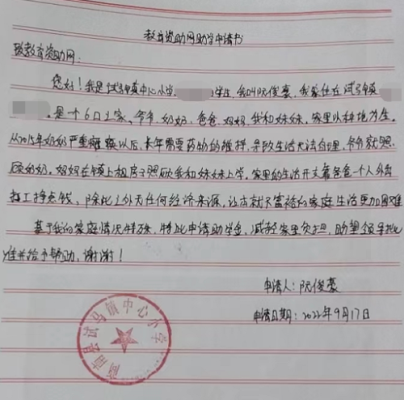 教育资助网助学申请书
教育资助网:
您好!我是试马镇中心小学 学生,我叫阮俊豪,我家住在试马镇
是一个6口之家。爷爷、奶奶、爸爸、妈妈、我和妹妹。家里以种地为生。
从2015年奶奶严重瘫痪以后,长年需要药物的维持,导致生活无法自理,爷爷就照
顾奶奶。妈妈在镇上租房子照顾我和妹妹上学,家里的生活开支靠爸爸一个人外出
打工挣点钱,除此之外无任何经济来源,让本就不富裕的家庭生活更加困难
基于我的家庭情况特殊,特此申请助学金,减轻家里负担,助望领导批
准并给予帮助,谢谢!
申请人:阮俊豪
申请日期:2022年9月17日
商南县试马镇中心小学